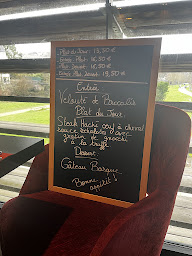 Plat du Jour 13,50 €
Entrée Plat 16,50 €
Plat Dessert 16,50 €
Entrée Plat Dessert 19,50 €
Entrée
Velouté de Brocolis
Plat du Jour
Steak Haché œuf à cheval
sauce échalotes avec
gratin de gnocchi
à la truffe
Dessert
Gâteau Basque
Bonne
appétit !